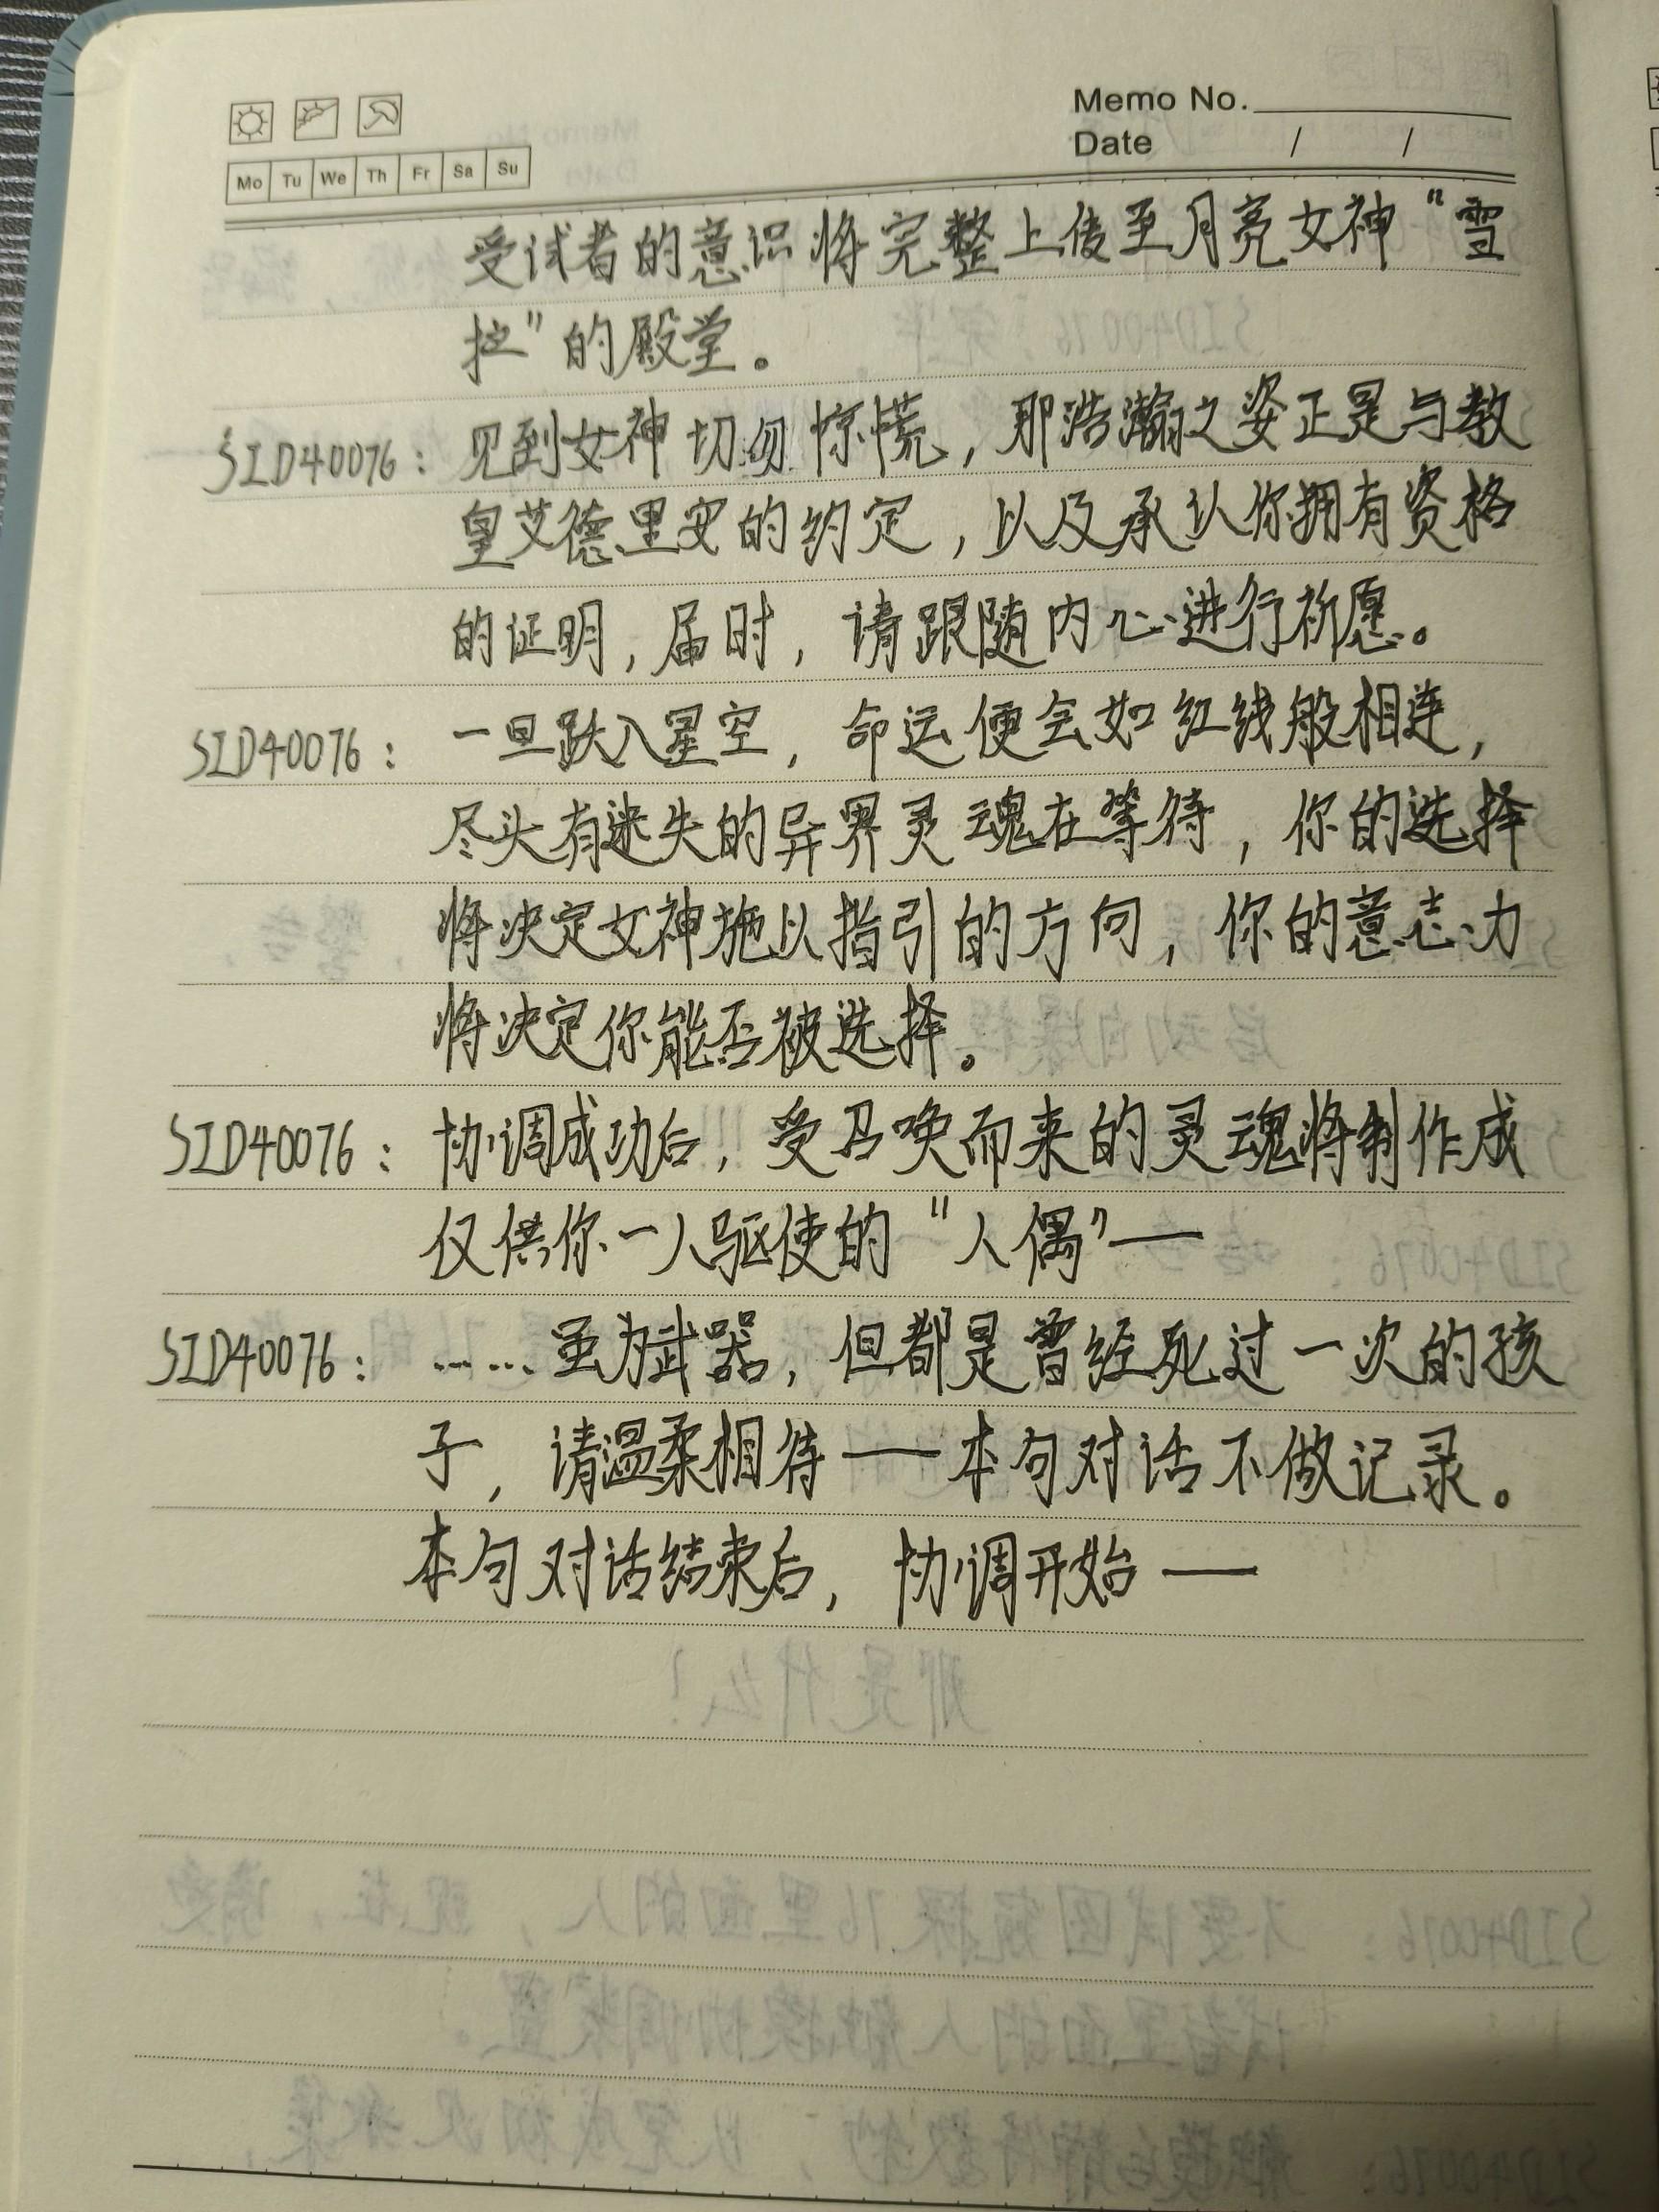 Memo No.
Date / /
Mo Tu We Th Fr Sa Su
受试者的意识将完整上传至月亮女神“雪
拉”的殿堂。
SID40076：见到女神切勿惊慌，那浩瀚之姿正是与教
皇艾德里安的约定，以及承认你拥有资格
的证明，届时，请跟随内心进行祈愿。
SID40076：一旦跃入星空，命运便会如红线般相连，
尽头有迷失的异界灵魂在等待，你的选择
将决定女神施以指引的方向，你的意志力
将决定你能否被选择。
SID40076：协调成功后，受召唤而来的灵魂将制作成
仅供你一人驱使的“人偶”—
SID40076：……虽为武器，但都是曾经死过一次的孩
子，请温柔相待—本句对话不做记录。
本句对话结束后，协调开始—